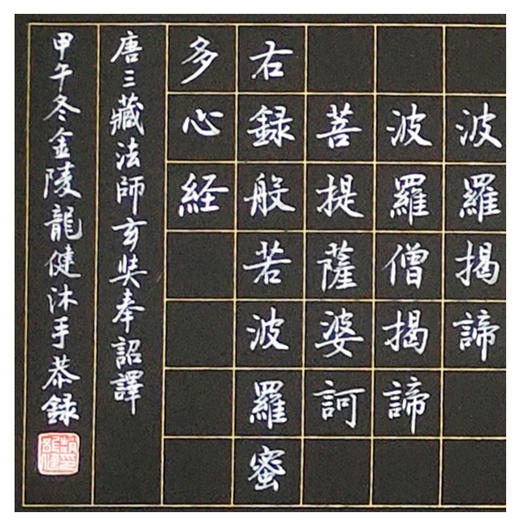 波羅揭諦
波羅僧揭諦
菩提薩婆訶
右録般若波羅蜜
多心経
唐三藏法師玄奘奉詔譯
甲午冬金陵龍健沐手恭録